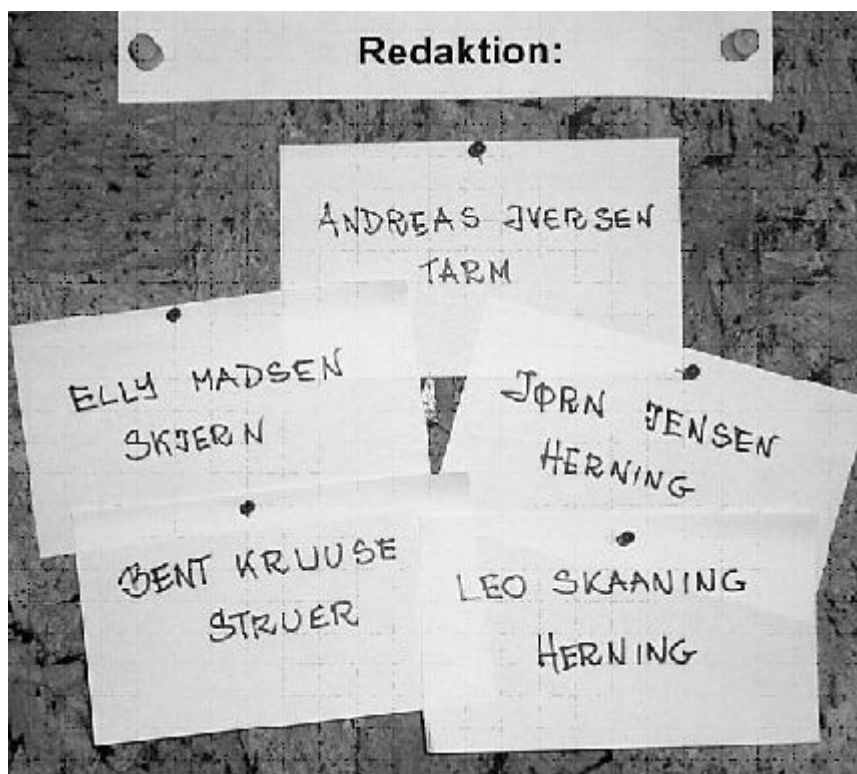 Redaktion:
ANDREAS IVERSEN
TARM
ELLY MADSEN
SKJERN
JØRN JENSEN
HERNING
BENT KRUUSE
STRUER
LEO SKAANING
HERNING